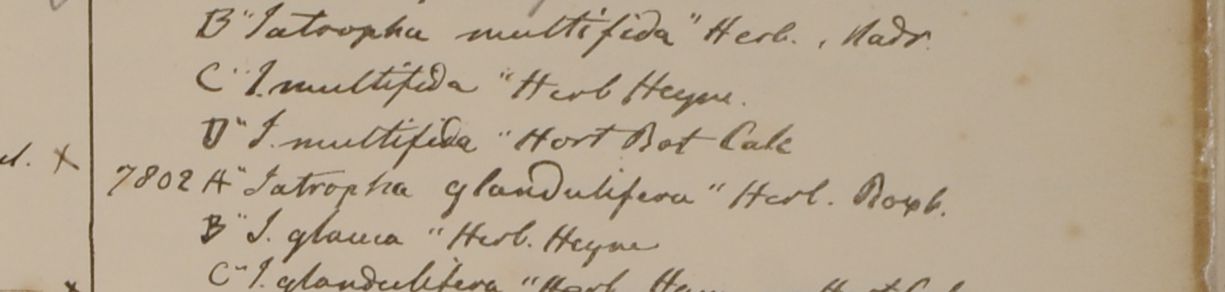 B "Iatropha multifida" Herb. Madr.
C "I. multifida" Herb Heyne.
D "I. multifida" Hort Bot Calc
× 7802 A "Iatropha glandulifera" Herl. Roxb.
B "I. glauca" Herb. Heyne
C "I. glandulifera" Herb